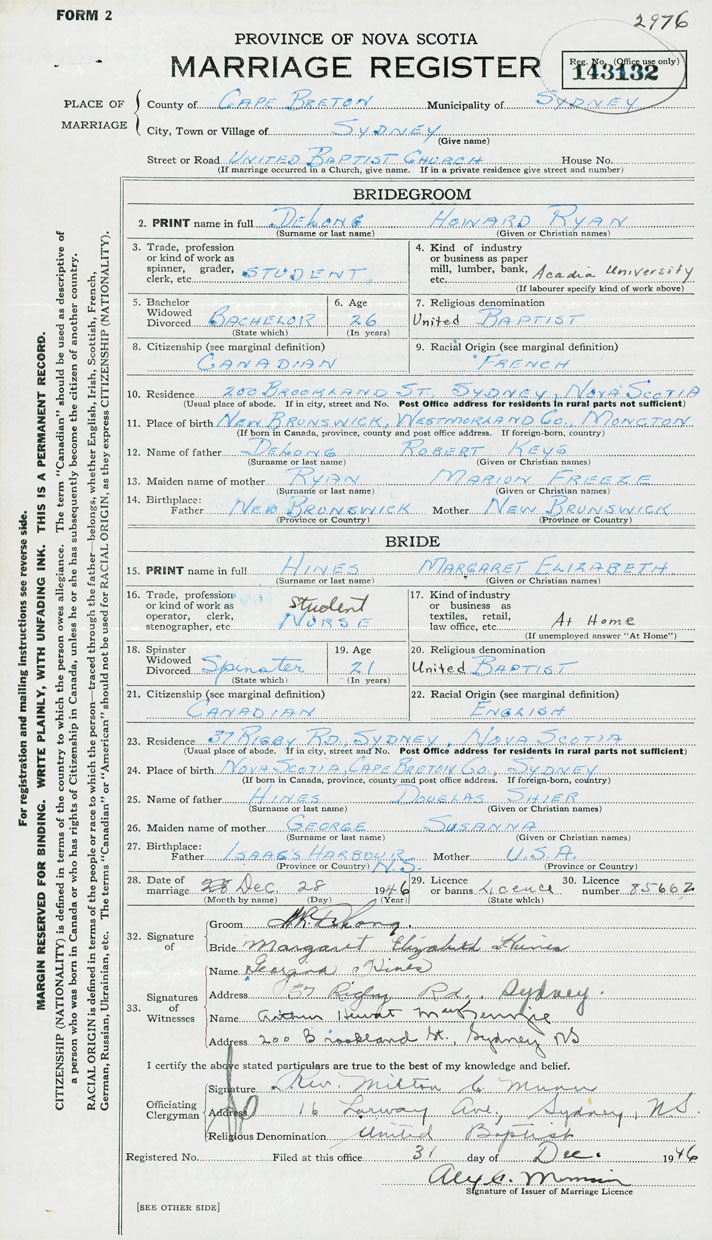 FORM 2
2976
PROVINCE OF NOVA SCOTIA
MARRIAGE REGISTER
Reg. No. (Office use only)
143132
PLACE OF MARRIAGE
County of CAPE BRETON Municipality of SYDNEY
City, Town or Village of SYDNEY
(Give name)
Street or Road UNITED BAPTIST CHURCH House No.
(If marriage occurred in a Church, give name. If in a private residence give street and number)
BRIDEGROOM
2. PRINT name in full DELONG HOWARD RYAN
(Surname or last name) (Given or Christian names)
3. Trade, profession or kind of work as spinner, grader, clerk, etc. STUDENT
4. Kind of industry or business as paper mill, lumber, bank, etc. Acadia University
(If labourer specify kind of work above)
5. Bachelor Widowed Divorced BACHELOR
(State which)
6. Age 26
(In years)
7. Religious denomination
United BAPTIST
8. Citizenship (see marginal definition)
CANADIAN
9. Racial Origin (see marginal definition)
FRENCH
10. Residence 200 BROOKLAND ST. SYDNEY, NOVA SCOTIA
(Usual place of abode. If in city, street and No. Post Office address for residents in rural parts not sufficient)
11. Place of birth NEW BRUNSWICK, WESTMORLAND CO., MONCTON
(If born in Canada, province, county and post office address. If foreign-born, country)
12. Name of father DELONG ROBERT KEYS
(Surname or last name) (Given or Christian names)
13. Maiden name of mother RYAN MARION FREEZE
(Surname or last name) (Given or Christian names)
14. Birthplace: Father NEW BRUNSWICK Mother NEW BRUNSWICK
(Province or Country) (Province or Country)
BRIDE
15. PRINT name in full HINES MARGARET ELIZABETH
(Surname or last name) (Given or Christian names)
16. Trade, profession or kind of work as operator, clerk, stenographer, etc. Student NURSE
17. Kind of industry or business as textiles, retail, law office, etc. At Home
(If unemployed answer "At Home")
18. Spinster Widowed Divorced Spinster
(State which)
19. Age 21
(In years)
20. Religious denomination
United BAPTIST
21. Citizenship (see marginal definition)
CANADIAN
22. Racial Origin (see marginal definition)
ENGLISH
23. Residence 37 RIGBY RD., SYDNEY, NOVA SCOTIA
(Usual place of abode. If in city, street and No. Post Office address for residents in rural parts not sufficient)
24. Place of birth NOVA SCOTIA, CAPE BRETON CO., SYDNEY
(If born in Canada, province, county and post office address. If foreign-born, country)
25. Name of father HINES DOUGLAS SHIER
(Surname or last name) (Given or Christian names)
26. Maiden name of mother GEORGE SUSANNA
(Surname or last name) (Given or Christian names)
27. Birthplace: Father ISAAC'S HARBOUR N.S. Mother U.S.A.
(Province or Country) (Province or Country)
28. Date of marriage Dec. 28 1946
(Month by name) (Day) (Year)
29. Licence or banns Licence
(State which)
30. Licence number 85662
32. Signature of
Groom H.R. DeLong.
Bride Margaret Elizabeth Hines
33. Signatures of Witnesses
Name Hines
Address 37 Rigby Rd., Sydney.
Name Arthur MacKenzie
Address 200 Brookland St., Sydney NS
I certify the above stated particulars are true to the best of my knowledge and belief.
Officiating Clergyman
Signature Rev. Milton C. Munn
Address 16 Ave, Sydney, N.S.
Religious Denomination United Baptist
Registered No. Filed at this office 31 day of Dec. 1946
Signature of Issuer of Marriage Licence
[SEE OTHER SIDE]
For registration and mailing instructions see reverse side.
MARGIN RESERVED FOR BINDING. WRITE PLAINLY, WITH UNFADING INK. THIS IS A PERMANENT RECORD.
CITIZENSHIP (NATIONALITY) is defined in terms of the country to which the person owes allegiance. The term "Canadian" should be used as descriptive of
a person who was born in Canada or who has rights of Citizenship in Canada, unless he or she has subsequently become the citizen of another country.
RACIAL ORIGIN is defined in terms of the people or race to which the person—traced through the father—belongs, whether English, Irish, Scottish, French,
German, Russian, Ukrainian, etc. The terms "Canadian" or "American" should not be used for RACIAL ORIGIN, as they express CITIZENSHIP (NATIONALITY).